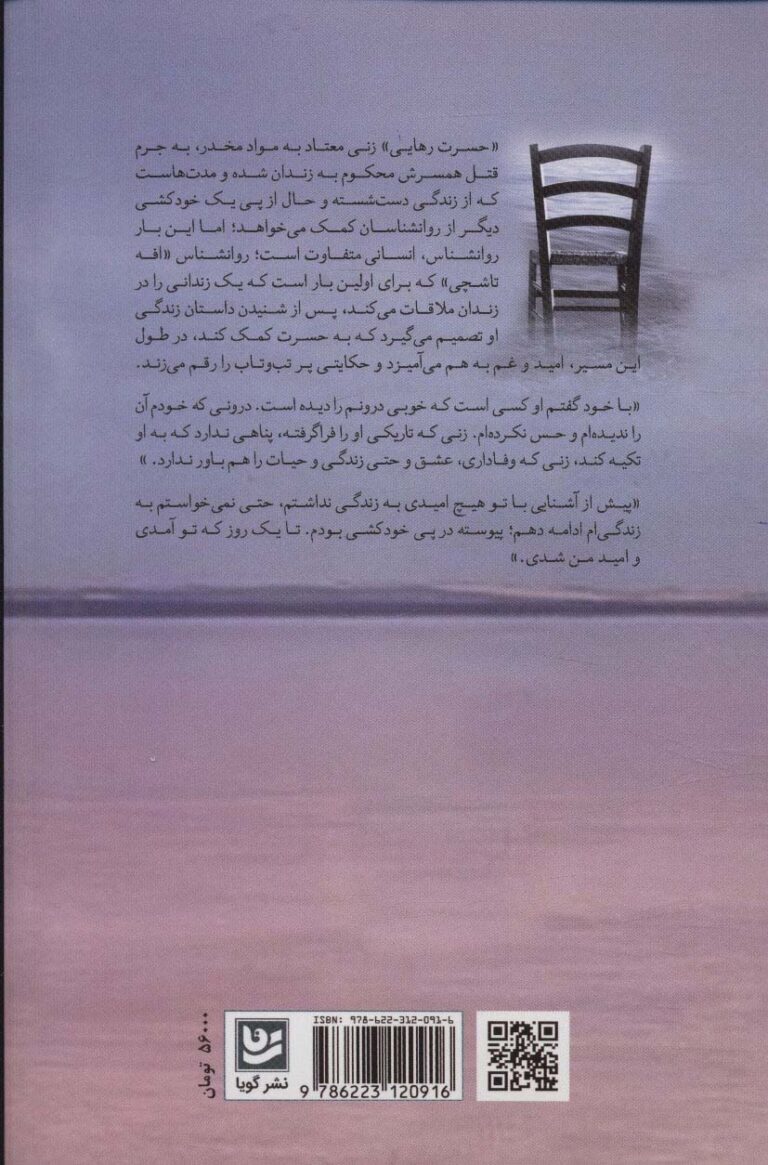 «حسرت رهایی» زنی معتاد به مواد مخدر، به جرم
قتل همسرش محکوم به زندان شده و مدت‌هاست
که از زندگی دست‌شسته و حال از پی یک خودکشی
دیگر از روانشناسان کمک می‌خواهد؛ اما این بار
روانشناس، انسانی متفاوت است؛ روانشناس «افه
تاشچی» که برای اولین بار است که یک زندانی را در
زندان ملاقات می‌کند، پس از شنیدن داستان زندگی
او تصمیم می‌گیرد که به حسرت کمک کند، در طول
این مسیر، امید و غم به هم می‌آمیزد و حکایتی پر تب‌وتاب را رقم می‌زند.
«با خود گفتم او کسی است که خوبی درونم را دیده است. درونی که خودم آن
را ندیده‌ام و حس نکرده‌ام. زنی که تاریکی او را فراگرفته، پناهی ندارد که به او
تکیه کند، زنی که وفاداری، عشق و حتی زندگی و حیات را هم باور ندارد. »
«پیش از آشنایی با تو هیچ امیدی به زندگی نداشتم، حتی نمی‌خواستم به
زندگی‌ام ادامه دهم؛ پیوسته در پی خودکشی بودم. تا یک روز که تو آمدی
و امید من شدی.»
۵۶۰۰۰ تومان
نشر گویا
ISBN: 978-622-312-091-6
9 786223 120916